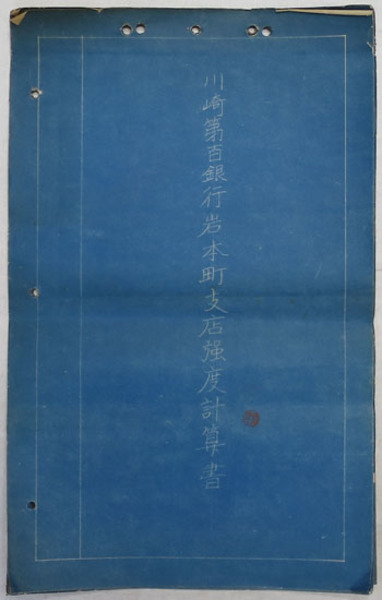 川崎第百銀行岩本町支店強度計算書